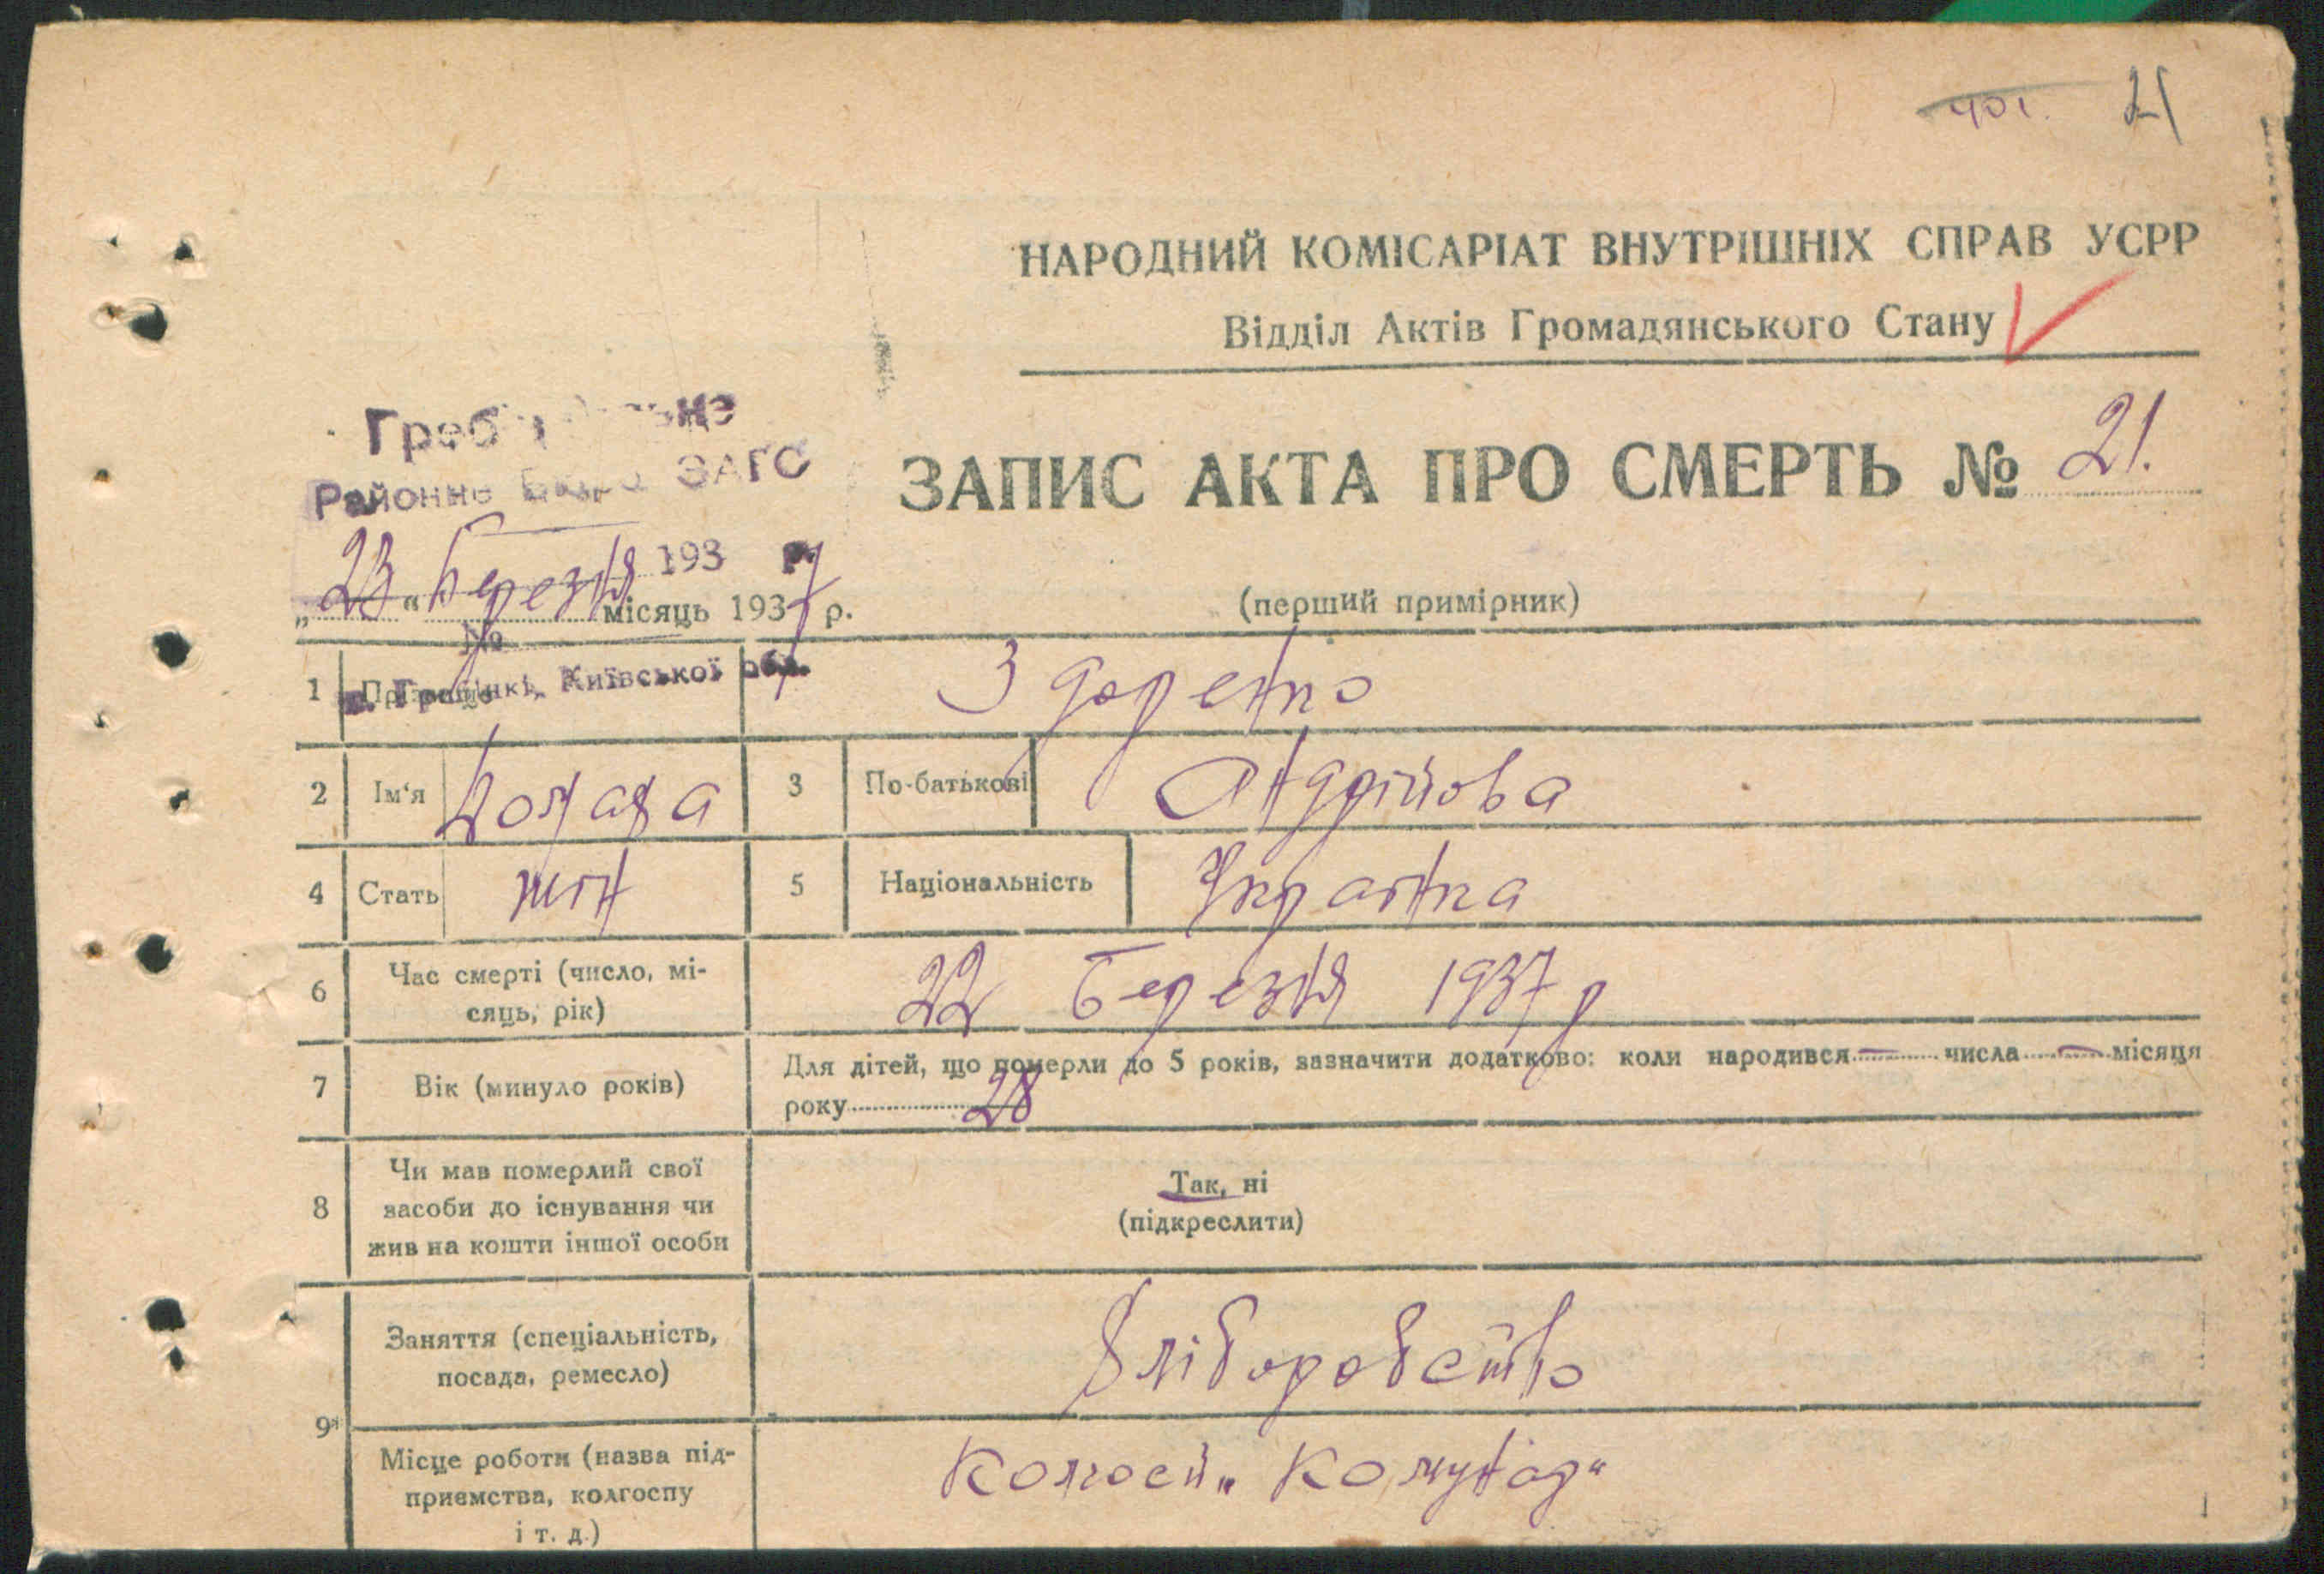 21
НАРОДНИЙ КОМІСАРІАТ ВНУТРІШНІХ СПРАВ УСРР
Відділ Актів Громадянського Стану
Районне Бюро ЗАГС
ЗАПИС АКТА ПРО СМЕРТЬ № 21.
193 р.
„23" березня місяць 1937 р.
(перший примірник)
№
м. Гребінкі, Київської обл.
1 Прізвище Здоренко
2 Ім'я 3 По-батькові Андрійова
4 Стать жін 5 Національність Українка
6 Час смерті (число, мі-
сяць, рік) 22 березня 1937 р
7 Вік (минуло років) Для дітей, що померли до 5 років, зазначити додатково: коли народився — числа — місяця
року 28
8 Чи мав померлий свої
засоби до існування чи
жив на кошти іншої особи
Так, ні
(підкреслити)
9 Заняття (спеціальність,
посада, ремесло) Хліборобство
Місце роботи (назва під-
приємства, колгоспу
і т. д.)
Колгосп „Комунар"